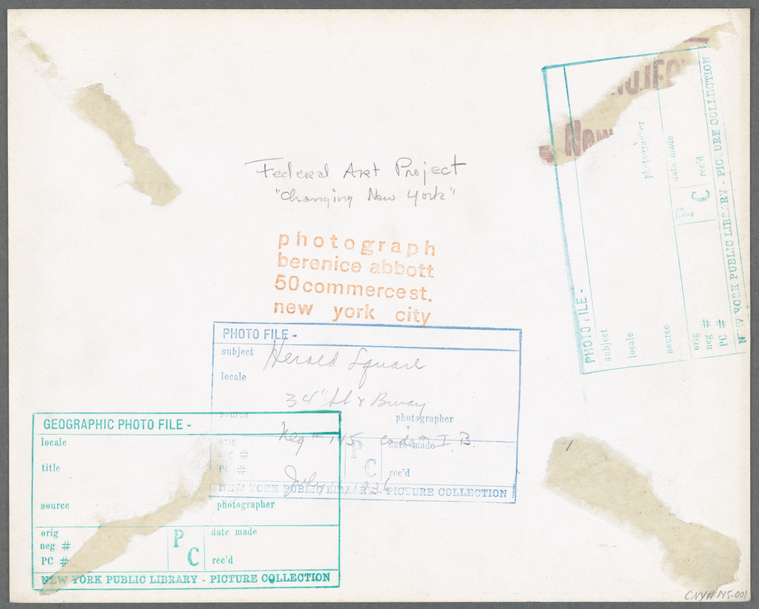 Federal Art Project
"Changing New York"
photograph
berenice abbott
50 commerce st.
new york city
PHOTO FILE -
subject Herald Square
locale
34" St & Bway
source
photographer
Neg # 145 code # I. B.
orig
neg #
PC #
date made
PC
rec'd
July 1936
NEW YORK PUBLIC LIBRARY - PICTURE COLLECTION
GEOGRAPHIC PHOTO FILE -
locale
title
source
photographer
orig
neg #
PC #
PC
date made
rec'd
NEW YORK PUBLIC LIBRARY - PICTURE COLLECTION
PHOTO FILE -
subject
locale
source
photographer
orig
neg #
PC #
PC
date made
rec'd
NEW YORK PUBLIC LIBRARY - PICTURE COLLECTION
New
CNY# 145-001